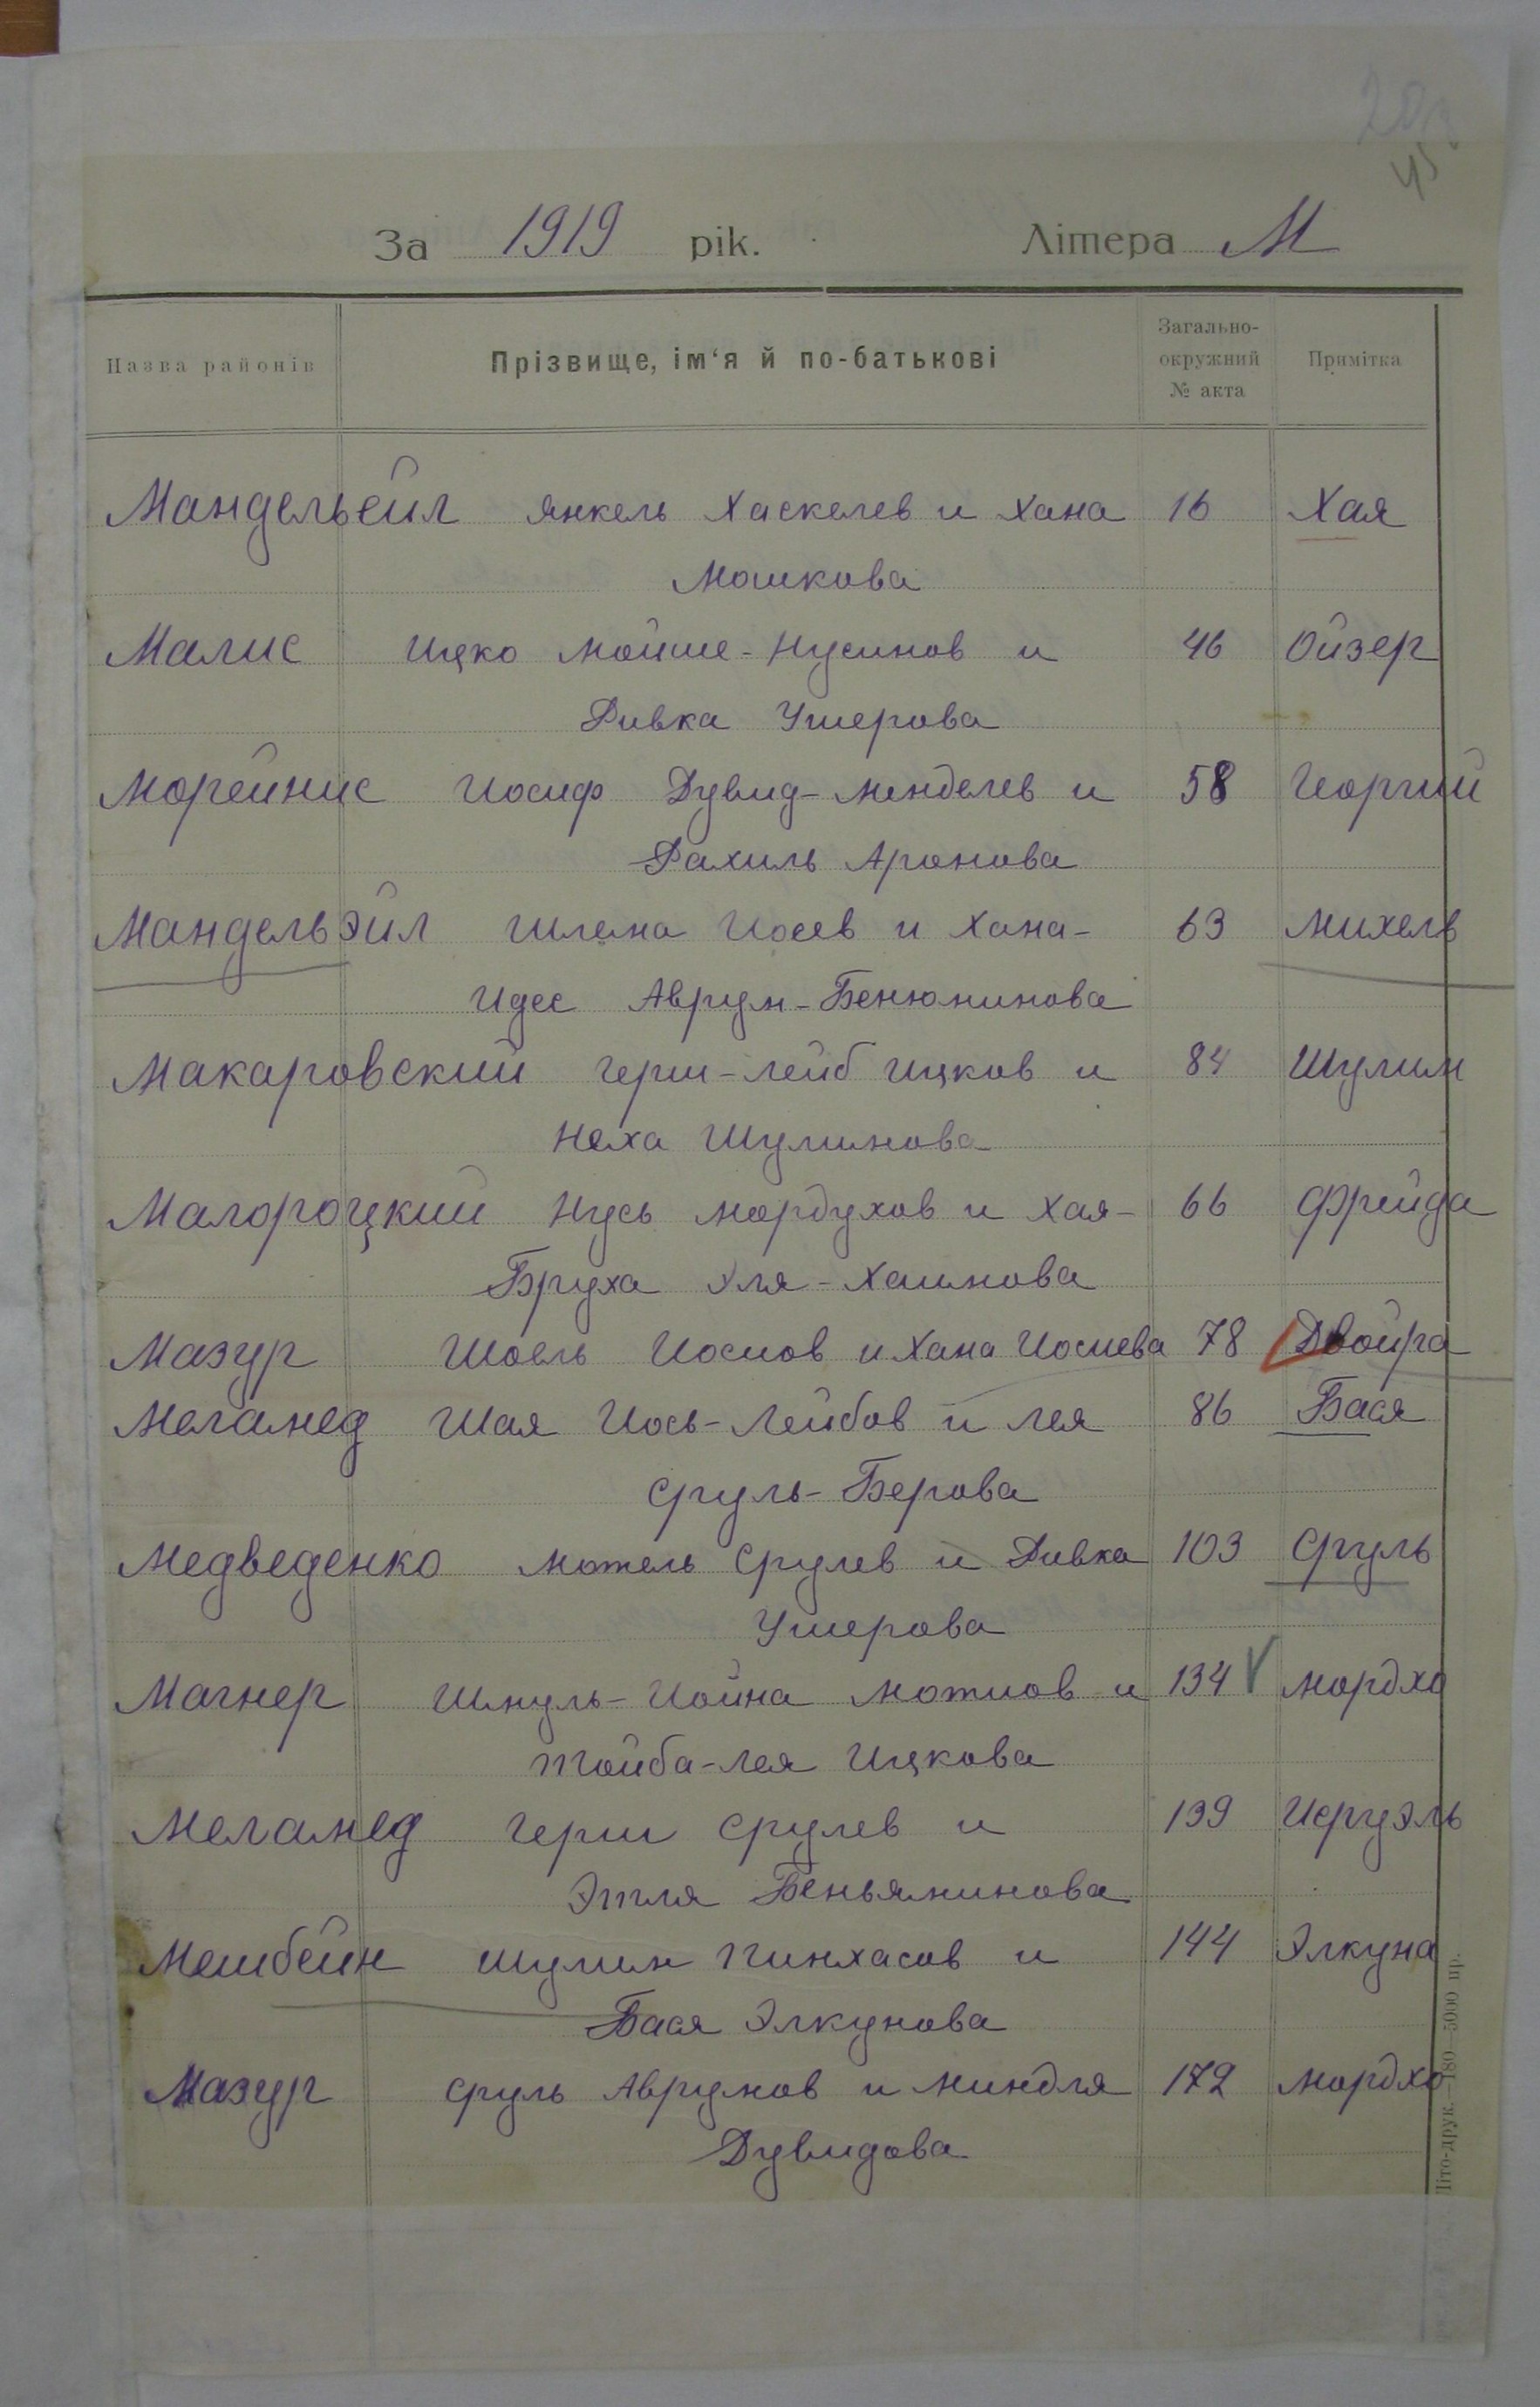 45
За 1919 рік. Літера М
Назва районів Прізвище, ім‘я й по-батькові Загально-окружний № акта Примітка
Мандельейл Янкель Хаскелев и Хана 16 Хая
Мошкова
Малис Ицко Мойше-Нусинов и 46 Ойзер
Ривка Ушерова
Морейнис Иосиф Дувид-Менделев и 58 Георгий
Рахиль Аронова
Мандельэйл Шлема Иосев и Хана- 63 Михель
Идес Аврум-Бенюминова
Макаровский Герш-Лейб Ицков и 84 Шулим
Неха Шулимова
Малороцкий Нусь Мордухов и Хая- 66 Фрейда
Бруха Эля-Хаимова
Мазур Шоель Иосиов и Хана Иосиева 78 Двойра
Меламед Шая Иось-Лейбов и Лея 86 Бася
Сруль-Берова
Медведенко Мотель Срулев и Ривка 103 Сруль
Ушерова
Магнер Шмуль-Иойна Мотиов и 134 Мордхо
Тойба-Лея Ицкова
Меламед Герш Срулев и 139 Исруэль
Этля Беньяминова
Мешбейн Шулим Пинхасов и 144 Элкуна
Бася Элкунова
Мазур Сруль Аврумов и Миндля 172 Мордхо
Дувидова
Літо-друк. —180—5000 пр.